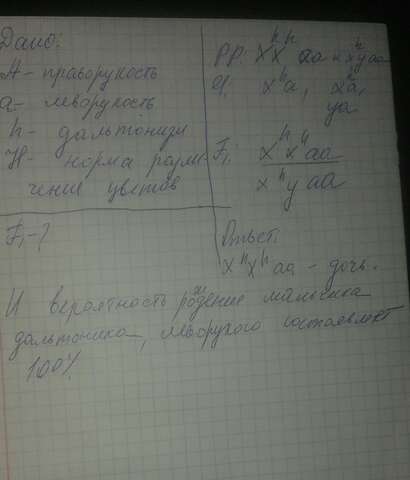 Дано:
А - праворукость
а - леворукость
h - дальтонизм
H - норма разли
чение цветов
F₁ - ?
PP: XʰXʰ аа × xʰy аа
g: xʰa, xʰa,
ya
F₁: xʰxʰaa
xʰy aa
Ответ:
xʰxʰ aa - дочь.
И вероятность рождение мальчика
дальтоника, леворукого составляет
100%